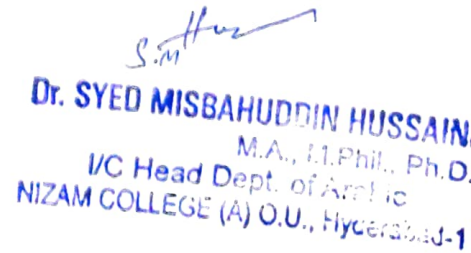 S.M Hus
Dr. SYED MISBAHUDDIN HUSSAIN
M.A., M.Phil., Ph.D.
I/C Head Dept. of Arabic
NIZAM COLLEGE (A) O.U., Hyderabad-1